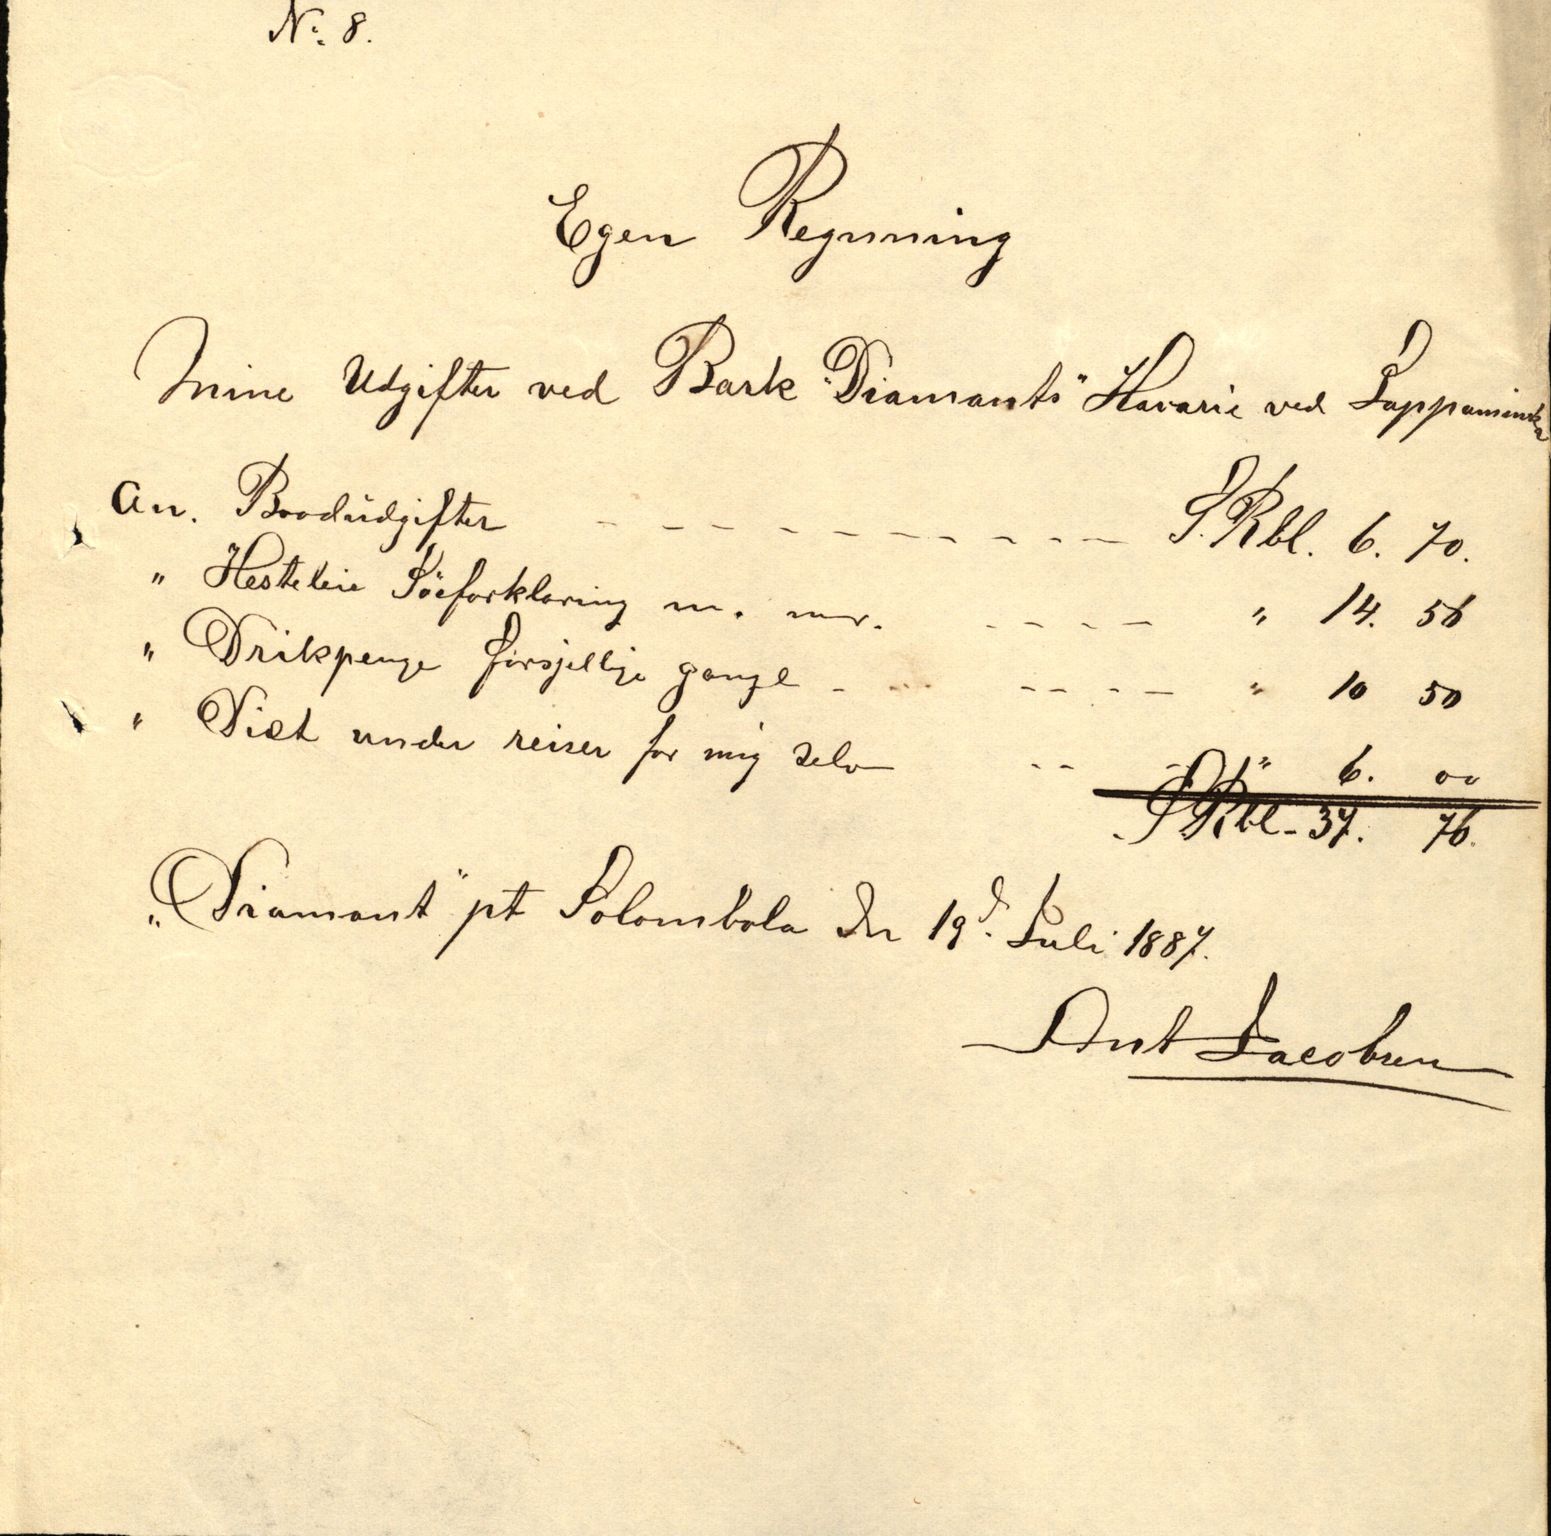 No. 8.
Egen Regnning
Mine Udgifter ved Bark "Diamants" Havarie ved Lappaminka
An. Baadudgifter - - - - - - - - - S. Rbl. 6. 70.
" Hesteleie Söeforklaring m. m. - - - - " 14. 56
" Drikpenge forsjellige gange - - - - - - " 10 50
" Diæt under reiser for mig selv - - - " 6. 00
S. Rbl - 37. 76.
"Diamant" pt Solombola den 19d. Juli 1887.
Ant Jacobsen